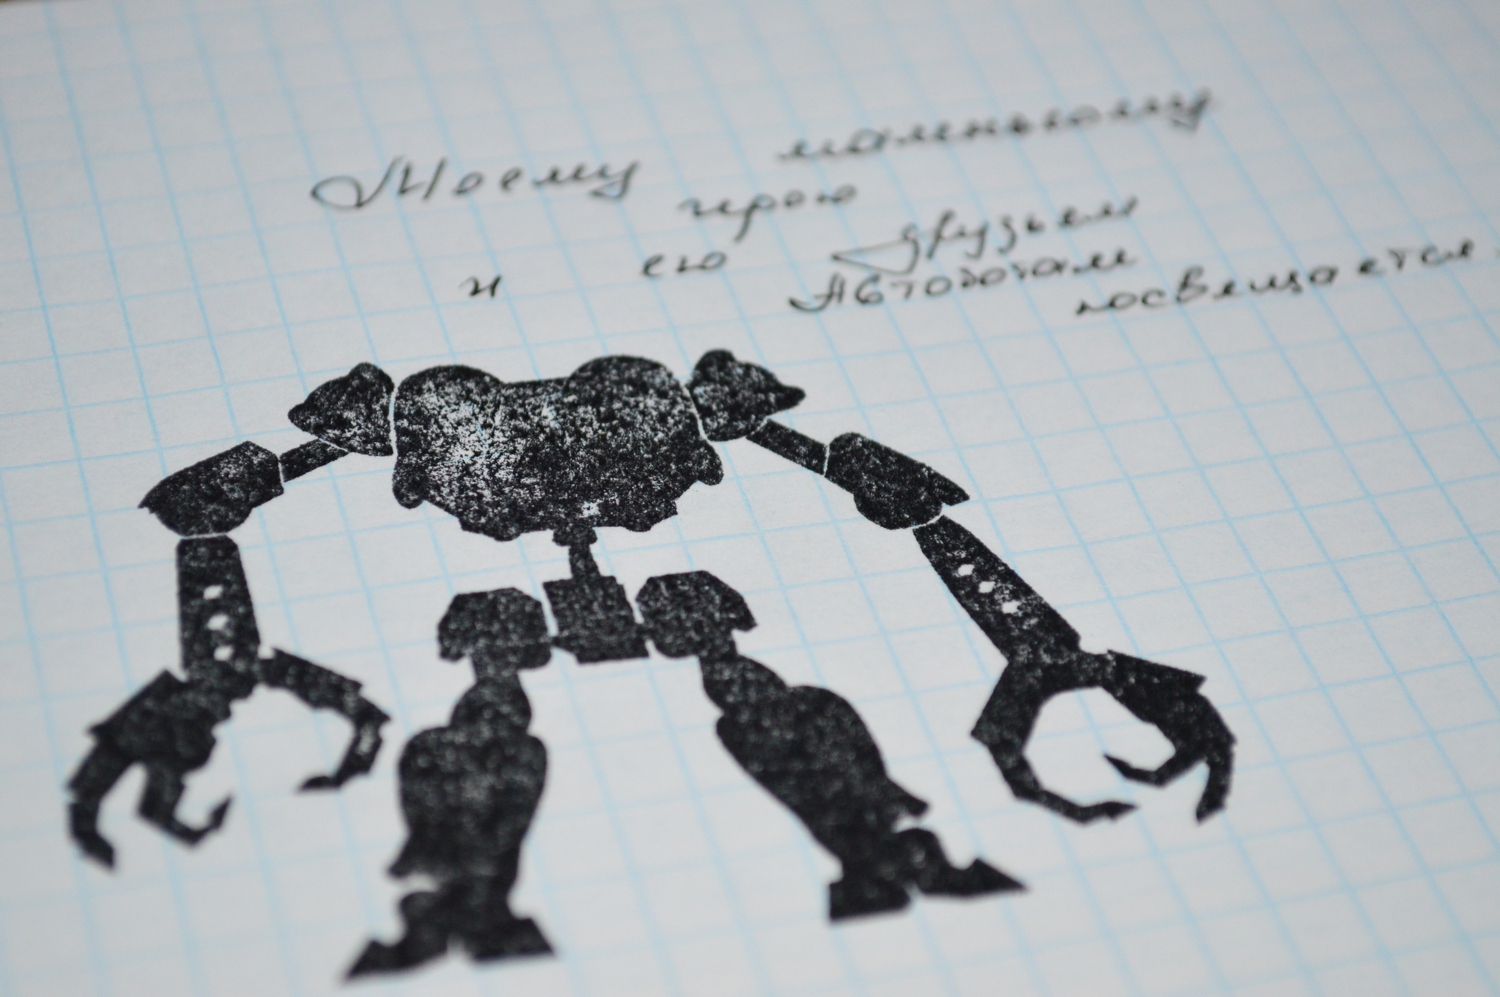 Моему маленькому
герою
и его друзьям
Автоботам
посвещается.